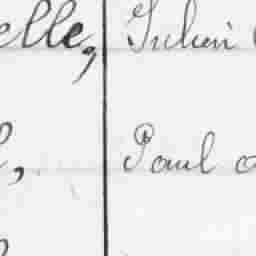 elle, Julien
Paul